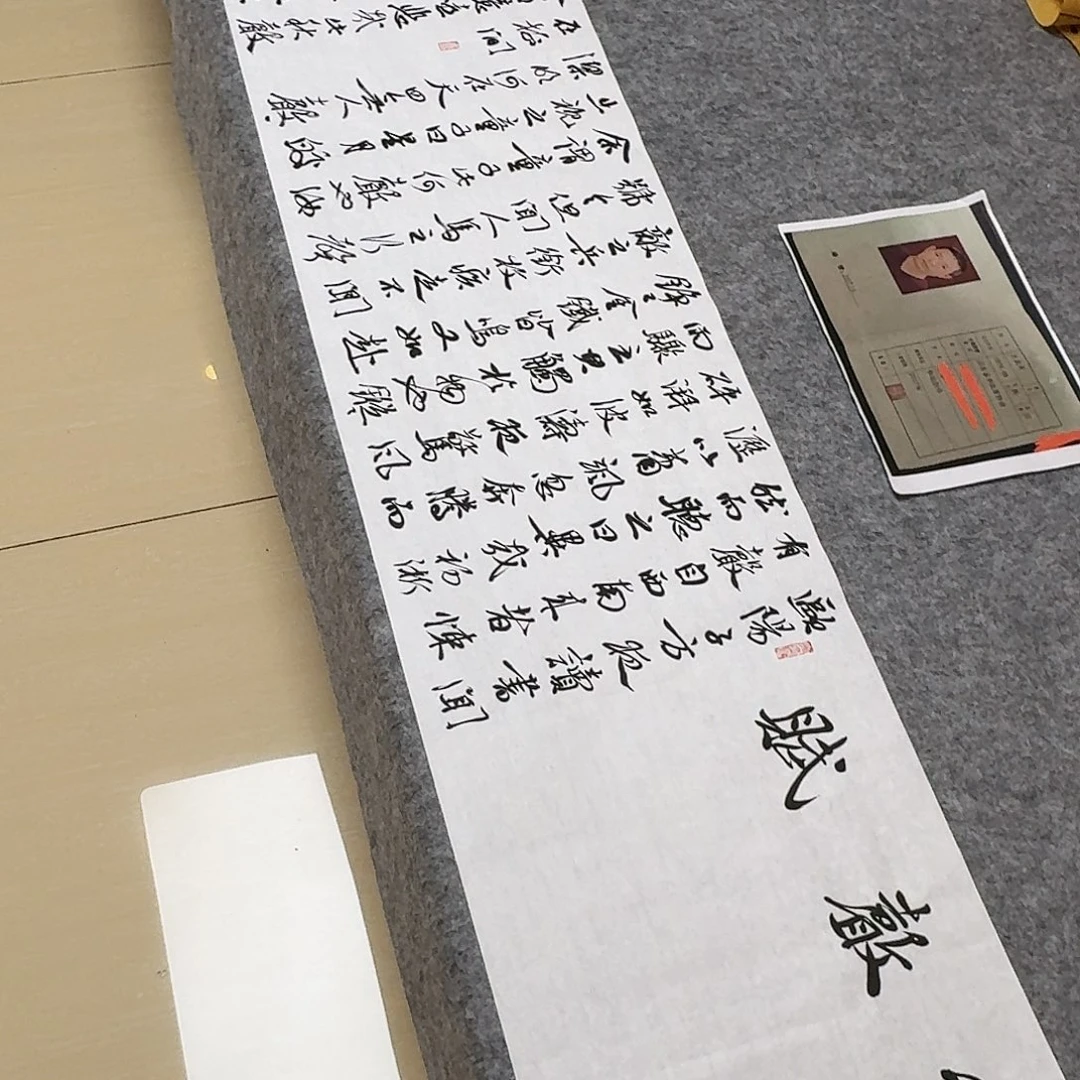 聲賦
歐陽子方夜讀書聞
有聲自西南來者悚
然而聽之曰異哉初淅
瀝以蕭颯忽奔騰而
砰湃如波濤夜驚風
雨驟至其觸於物也鏦
錚錚金鐵皆鳴又如赴
敵之兵銜枚疾走不聞
號令但聞人馬之行聲
余謂童子此何聲也汝
出視之童子曰星月皎
潔明河在天四無人聲
在樹間
悲哉此秋聲